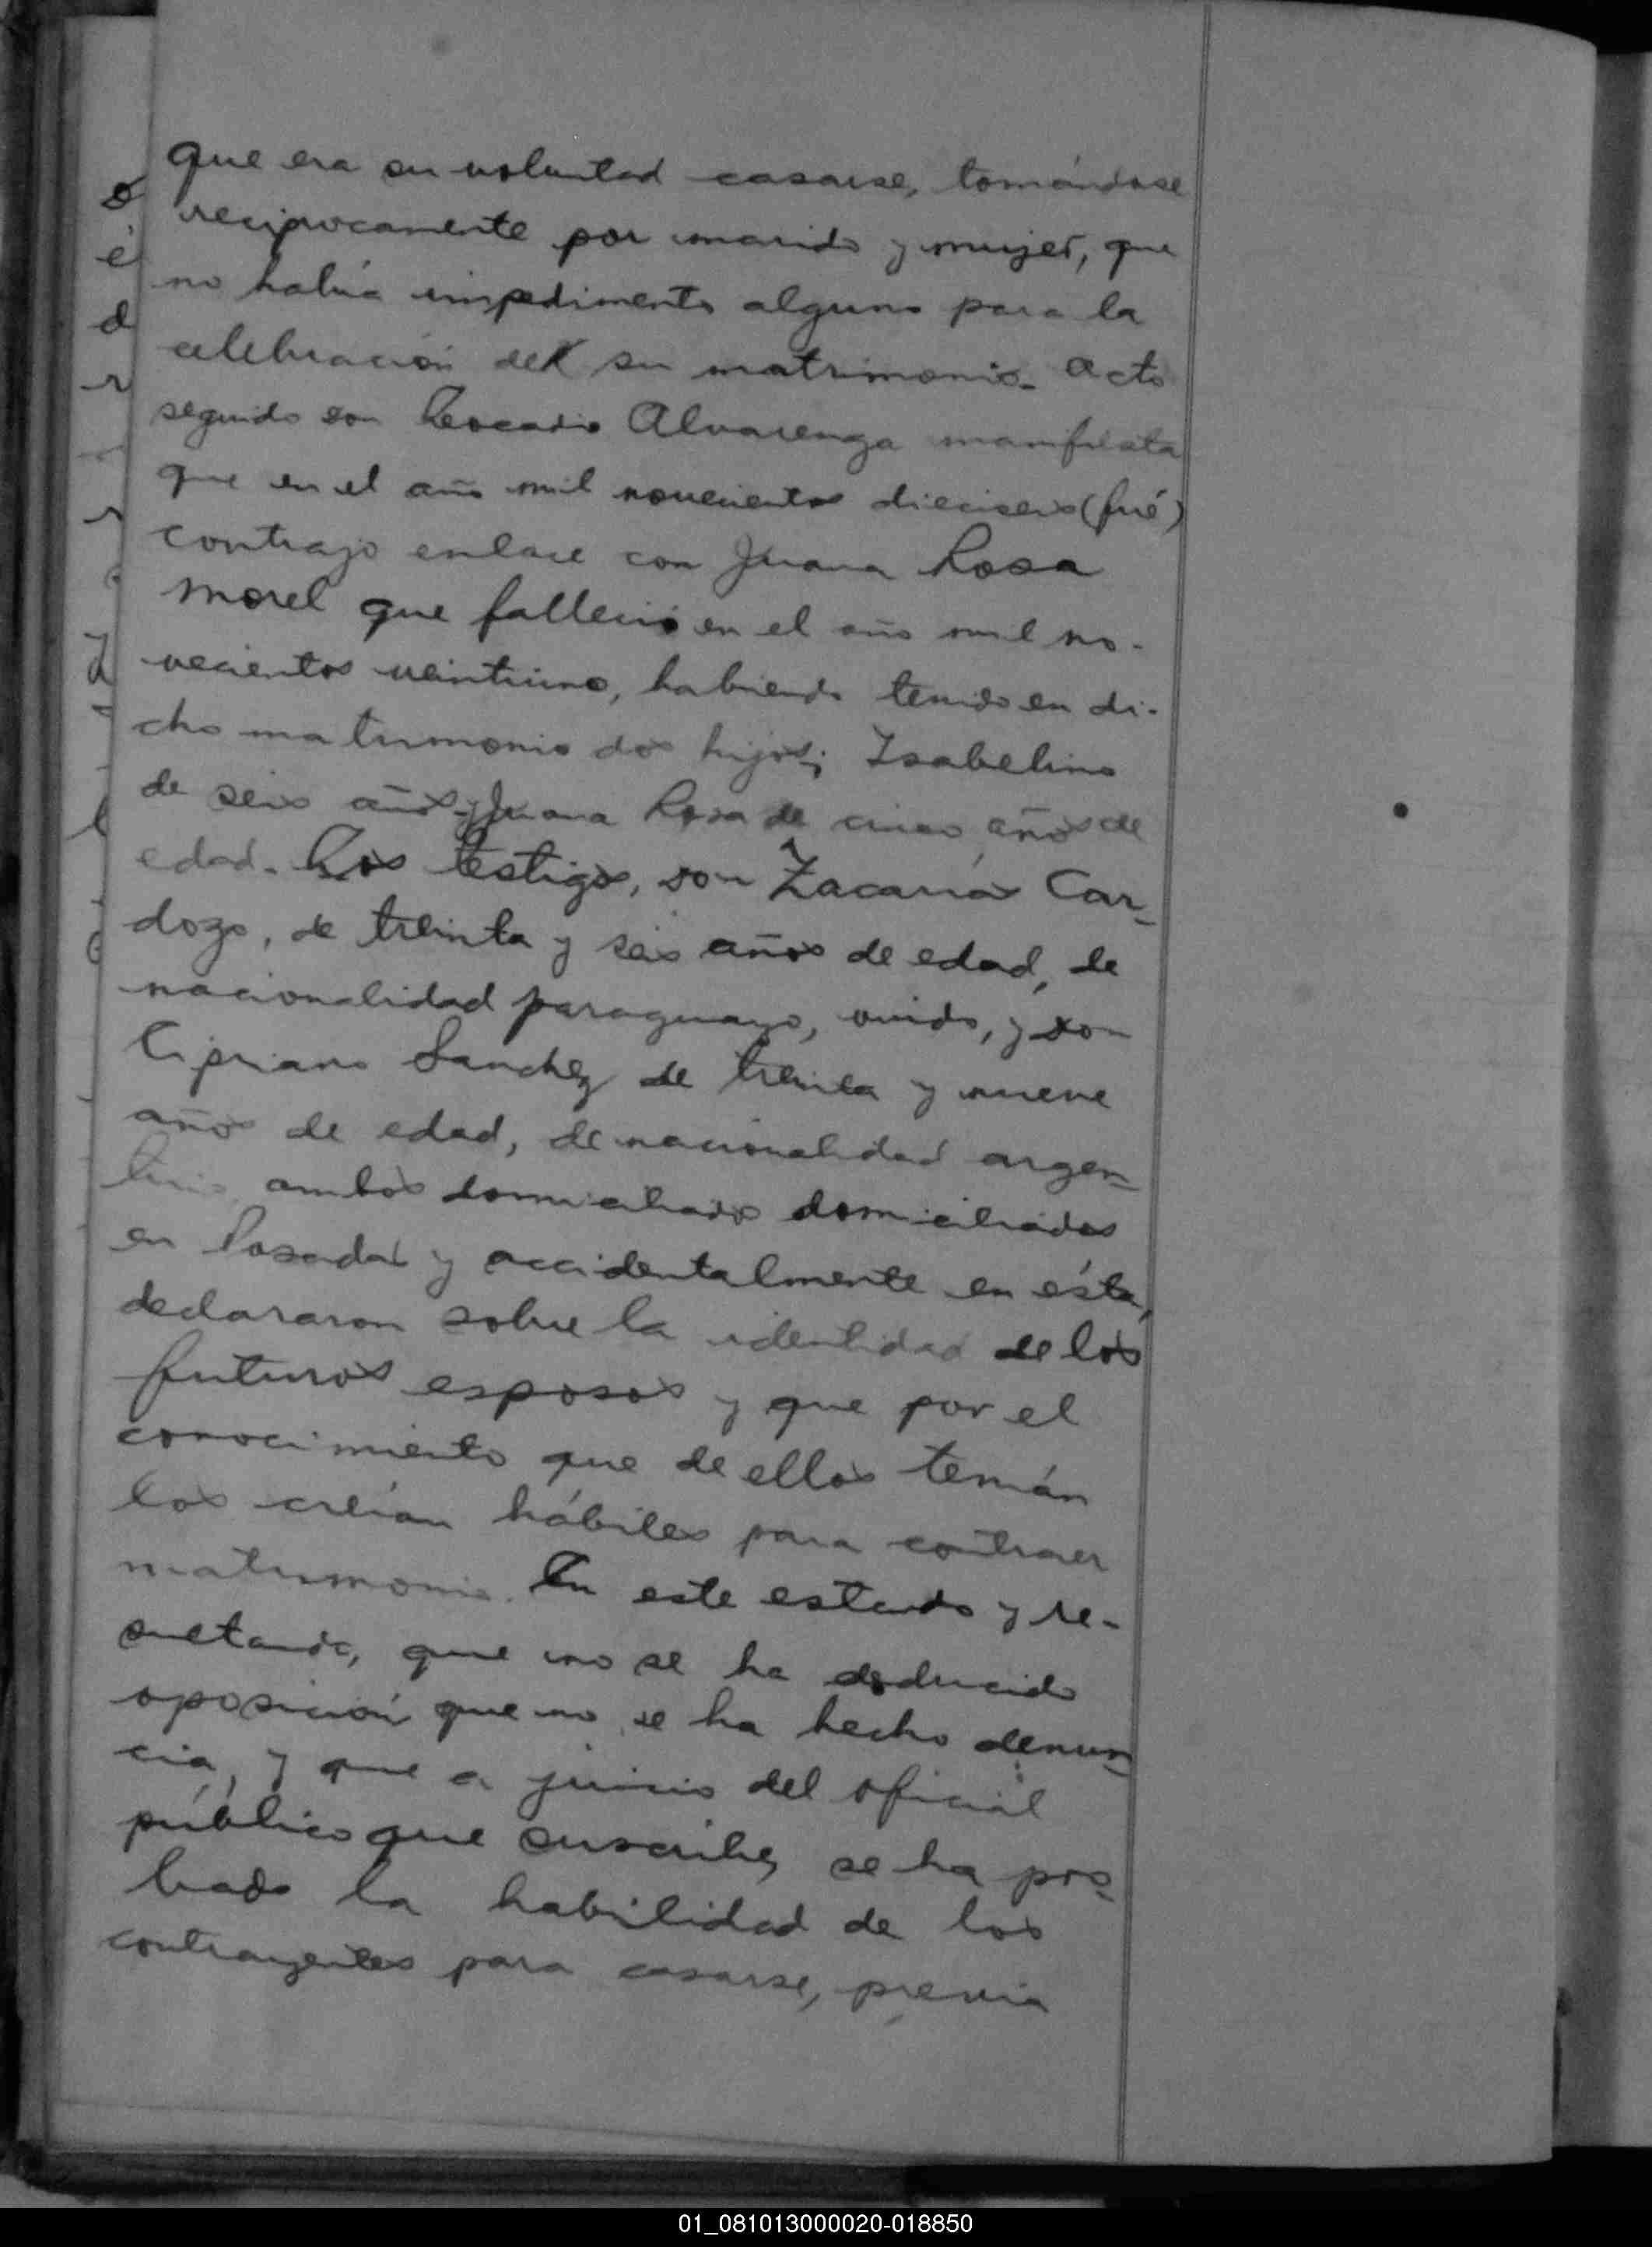 que era su voluntad casarse, tomándose
reciprocamente por marido y mujer, que
no había impedimento alguno para la
celebración del su matrimonio. Acto
seguido don Leocadio Alvarenga manifiesta
que en el año mil novecientos dieciseis (fué)
contrajo enlace con Juana Rosa
Morel que falleció en el año mil no-
vecientos veintiuno, habiendo tenido en di-
cho matrimonio dos hijos; Isabelino
de seis años y Juana Rosa de cinco años de
edad. Los testigos, don Zacarías Car-
dozo, de treinta y seis años de edad, de
nacionalidad paraguayo, y don
Cipriano Sanchez de treinta y nueve
años de edad, de nacionalidad argen-
tino ambos domiciliados domiciliados
en Posadas y accidentalmente en ésta,
declararon sobre la identidad de los
futuros esposos y que por el
conocimiento que de ellos tenían
los creían hábiles para contraer
matrimonio. En este estado y re-
sultando, que no se ha deducido
oposición que no se ha hecho denun-
cia, y que a juicio del oficial
público que suscribe, se ha pro-
bado la habilidad de los
contrayentes para casarse, previa
01_081013000020-018850